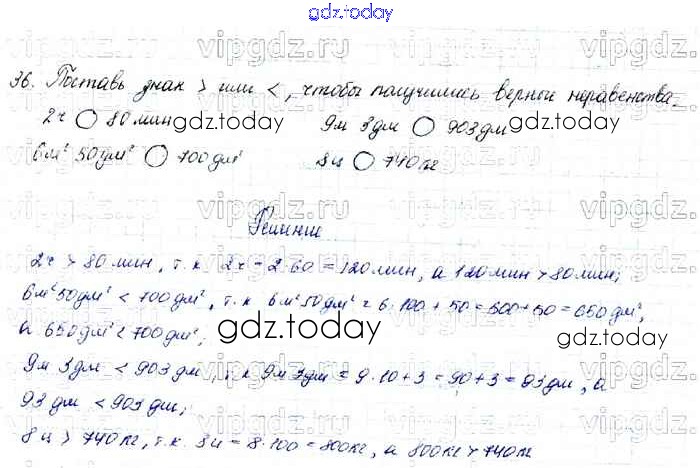 gdz.today
vipgdz.ru vipgdz.ru vipgdz.ru
36. Поставь знак > или <, чтобы получились верные неравенства.
2ч ○ 80 мин gdz.today 9м 3дм ○ 903 дм gdz.today
6м² 50дм² ○ 700 дм² 8ц ○ 740 кг
vipgdz.ru vipgdz.ru vipgdz.ru
Решение
2ч > 80 мин, т.к. 2ч = 2·60 = 120 мин, а 120 мин > 80 мин;
6м² 50дм² < 700 дм², т.к. 6м² 50дм² = 6·100 + 50 = 600 + 50 = 650 дм²,
а 650 дм² < 700 дм²;
gdz.today gdz.today
9м 3дм < 903 дм, т.к. 9м 3дм = 9·10 + 3 = 90 + 3 = 93 дм, а
vipgdz.ru vipgdz.ru vipgdz.ru
93 дм < 903 дм;
8ц > 740 кг, т.к. 8ц = 8·100 = 800 кг, а 800 кг > 740 кг